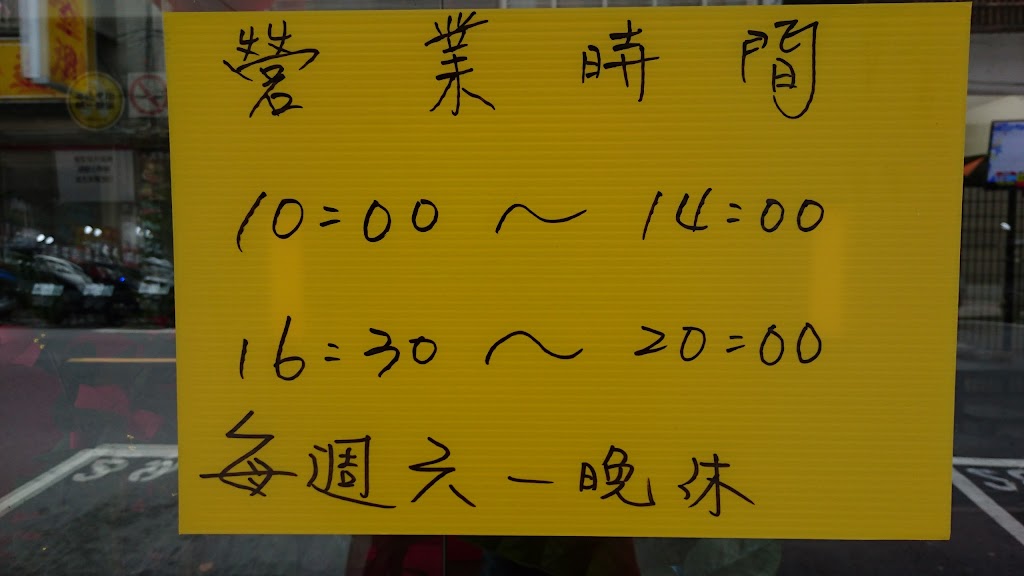 營業時間
10:00 ~ 14:00
16:30 ~ 20:00
每週六一晚休